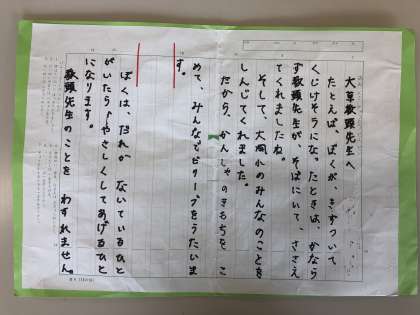 大草教頭先生へ
たとえば、ぼくが、きずついて
くじけそうになったときは、かなら
ず教頭先生が、そばにいて、ささえ
てくれましたね。
そして、大岡小のみんなのことを
しんじてくれました。
だから、かんしゃのきもちを こ
めて、みんなでビリーブをうたいま
す。
ぼくは、だれか ないているひと
がいたら、やさしくしてあげるひと
になります。
教頭先生のことを わすれません。